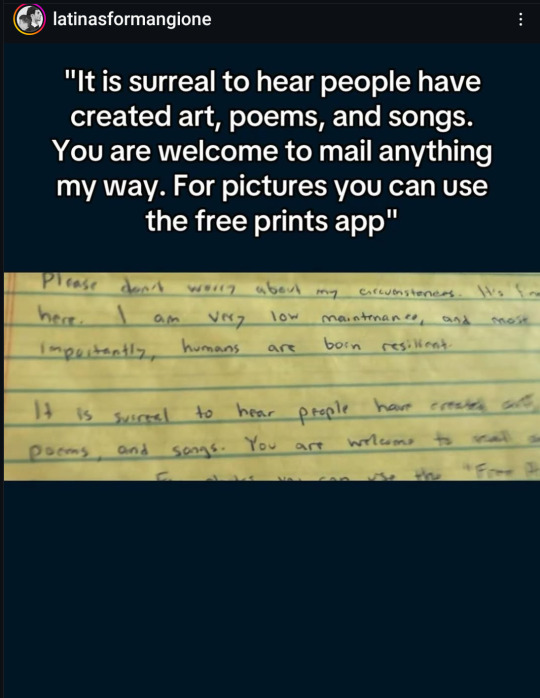 latinasformangione
"It is surreal to hear people have
created art, poems, and songs.
You are welcome to mail anything
my way. For pictures you can use
the free prints app"
Please don't worry about my circumstances. It's
here. I am very low maintenance, and most
importantly, humans are born resilient.
It is surreal to hear people have created art
poems, and songs. You are welcome to mail
you can use the "Free